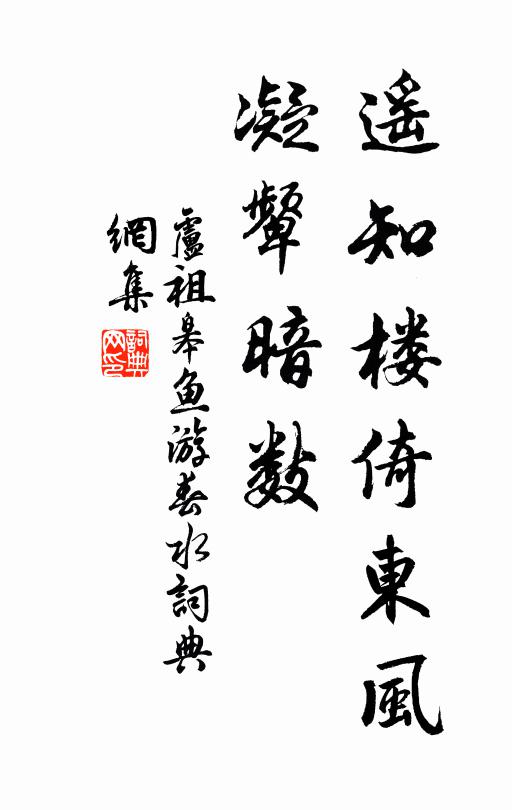 遥知楼倚東風
凝颦暗数
盧祖皋魚游春水詞典
網集
詞典网印